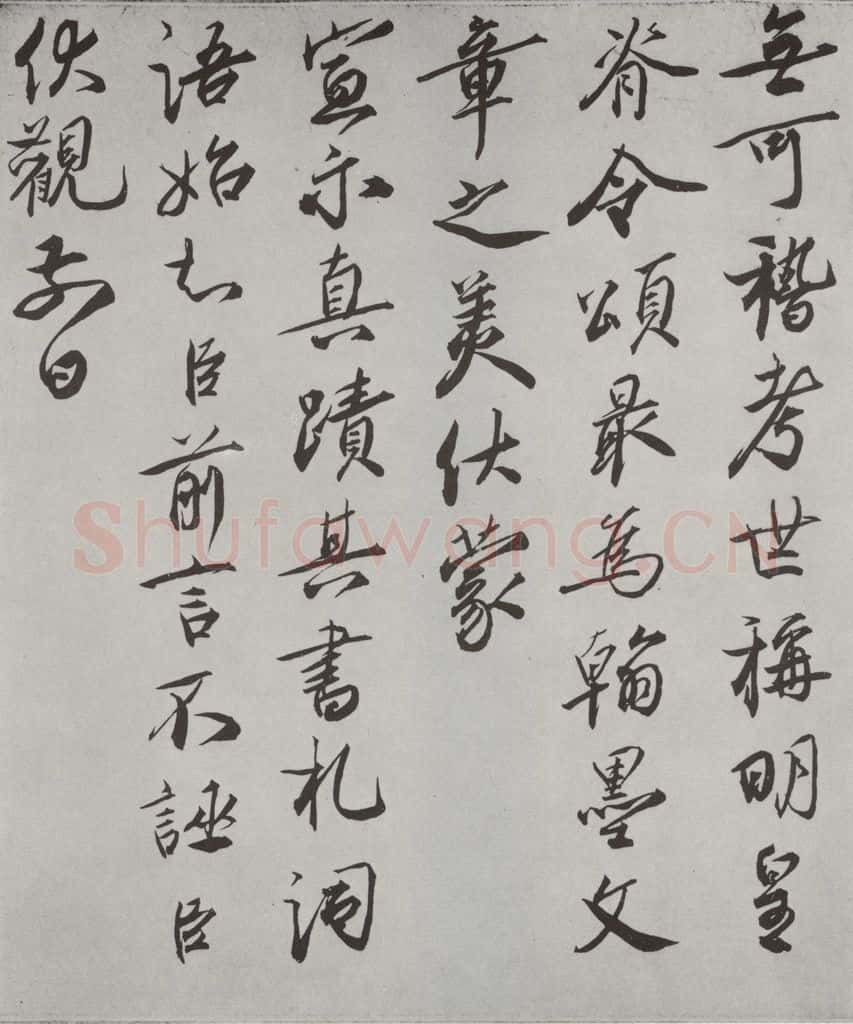 無可稽考世稱明皇
脊令頌最為翰墨文
章之美伏蒙
宣示真蹟其書札詞
語始知臣前言不誣臣
伏觀前日
Shufawang.CN